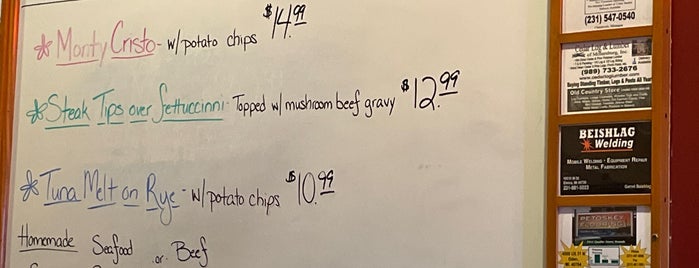 * Monty Cristo - w/potato chips $14.99
* Steak Tips over fettuccinni - Topped w/ mushroom beef gravy $12.99
* Tuna Melt on Rye - w/potato chips $10.99
Homemade Seafood or Beef
(231) 547-0540
Cedar Log & Lumber
(989) 733-2676
www.cedarloglumber.com
Buying Standing Timber, Logs & Posts All Year
Old Country Store
BEISHLAG
Welding
MOBILE WELDING · EQUIPMENT REPAIR
METAL FABRICATION
PETOSKEY
FLOORING